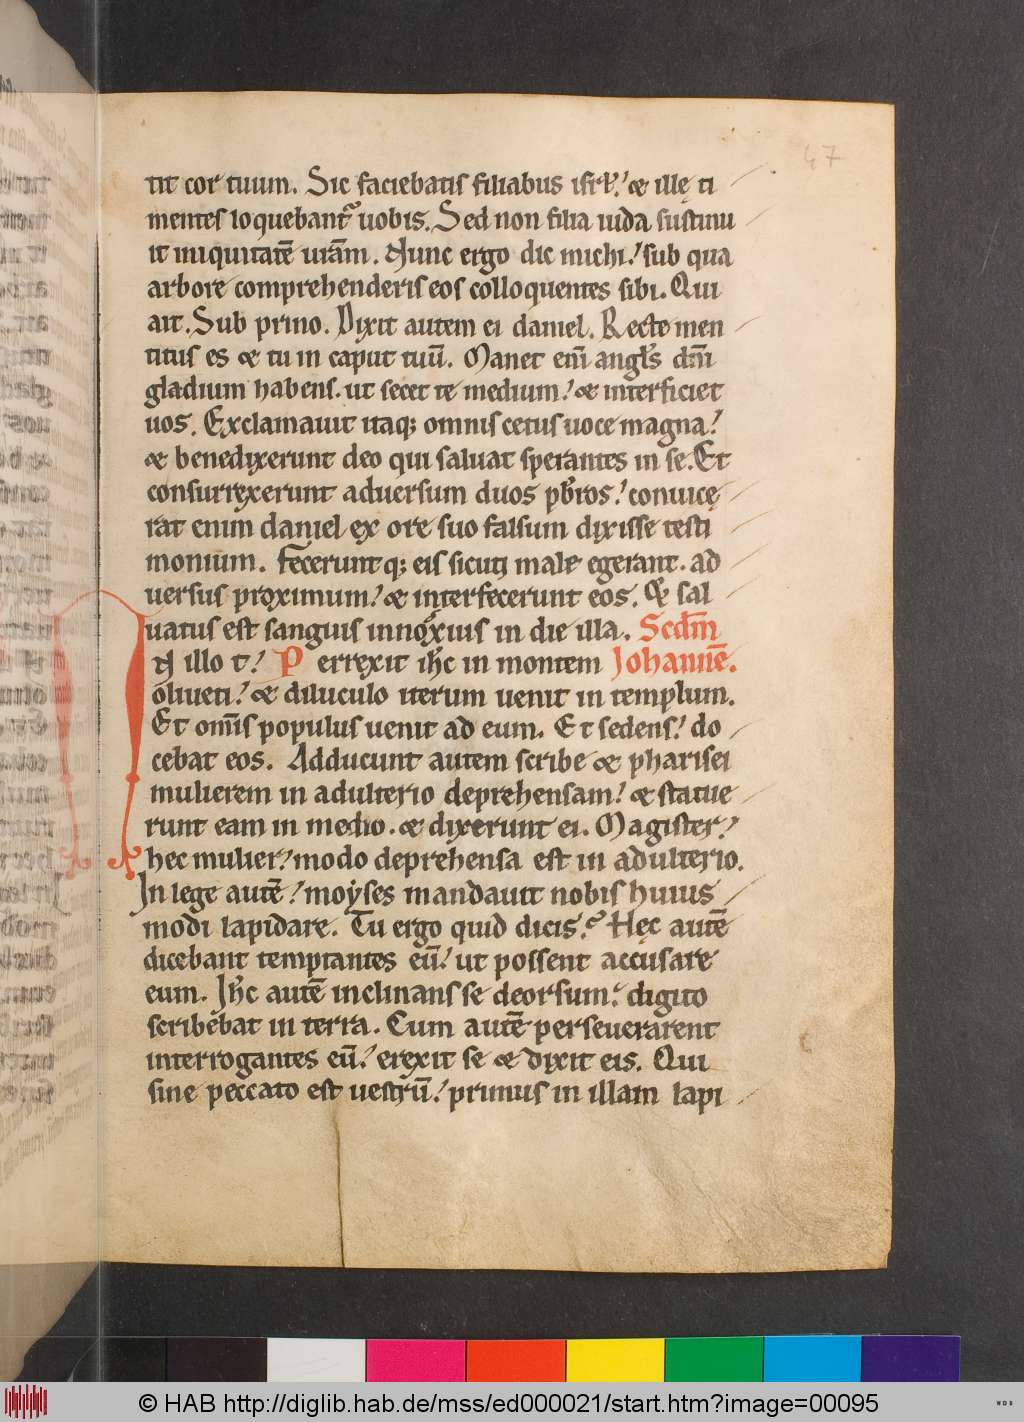 47
tit cor tuum. Sic faciebatis filiabus isrl̄. & illę ti
mentes loquebant̄ uobis. Sed non filia iuda sustinu
it iniquitatē urām. Nunc ergo dic michi. sub qua
arbore comprehenderis eos colloquentes sibi. Qui
ait. Sub prino. Dixit autem ei daniel. Recte men
titus es & tu in caput tuū. Manet eni̅ angl̄s dn̄i
gladium habens. ut secet te medium. & interficiet
uos. Exclamauit itaq; omnis cetus uoce magna.
& benedixerunt deo qui saluat sperantes in se. Et
consurrexerunt aduersum duos pb̄ros. conuicę
rat enim daniel ex ore suo falsum dixisse testi
monium. Feceruntq; eis sicuti male egerant. ad
uersus proximum. & interfecerunt eos. & sal
uatus est sanguis innoxius in die illa. Scdm̄
IN illo t. Perrexit ih̄c in montem Johannē.
oliueti. & diluculo iterum uenit in templum.
Et om̄is populus uenit ad eum. Et sedens. do
cebat eos. Adducunt autem scribe & pharisei
mulierem in adulterio deprehensam. & statue
runt eam in medio. & dixerunt ei. Magister.
hec mulier. modo deprehensa est in adulterio.
In lege autē. moyses mandauit nobis huius
modi lapidare. Tu ergo quid dicis? Hęc autē
dicebant temptantes eū. ut possent accusare
eum. Ih̄c autē inclinans se deorsum. digito
scribebat in terra. Cum autē perseuerarent
interrogantes eū. erexit se & dixit eis. Qui
sine peccato est uestrū. primus in illam lapi
© HAB http://diglib.hab.de/mss/ed000021/start.htm?image=00095